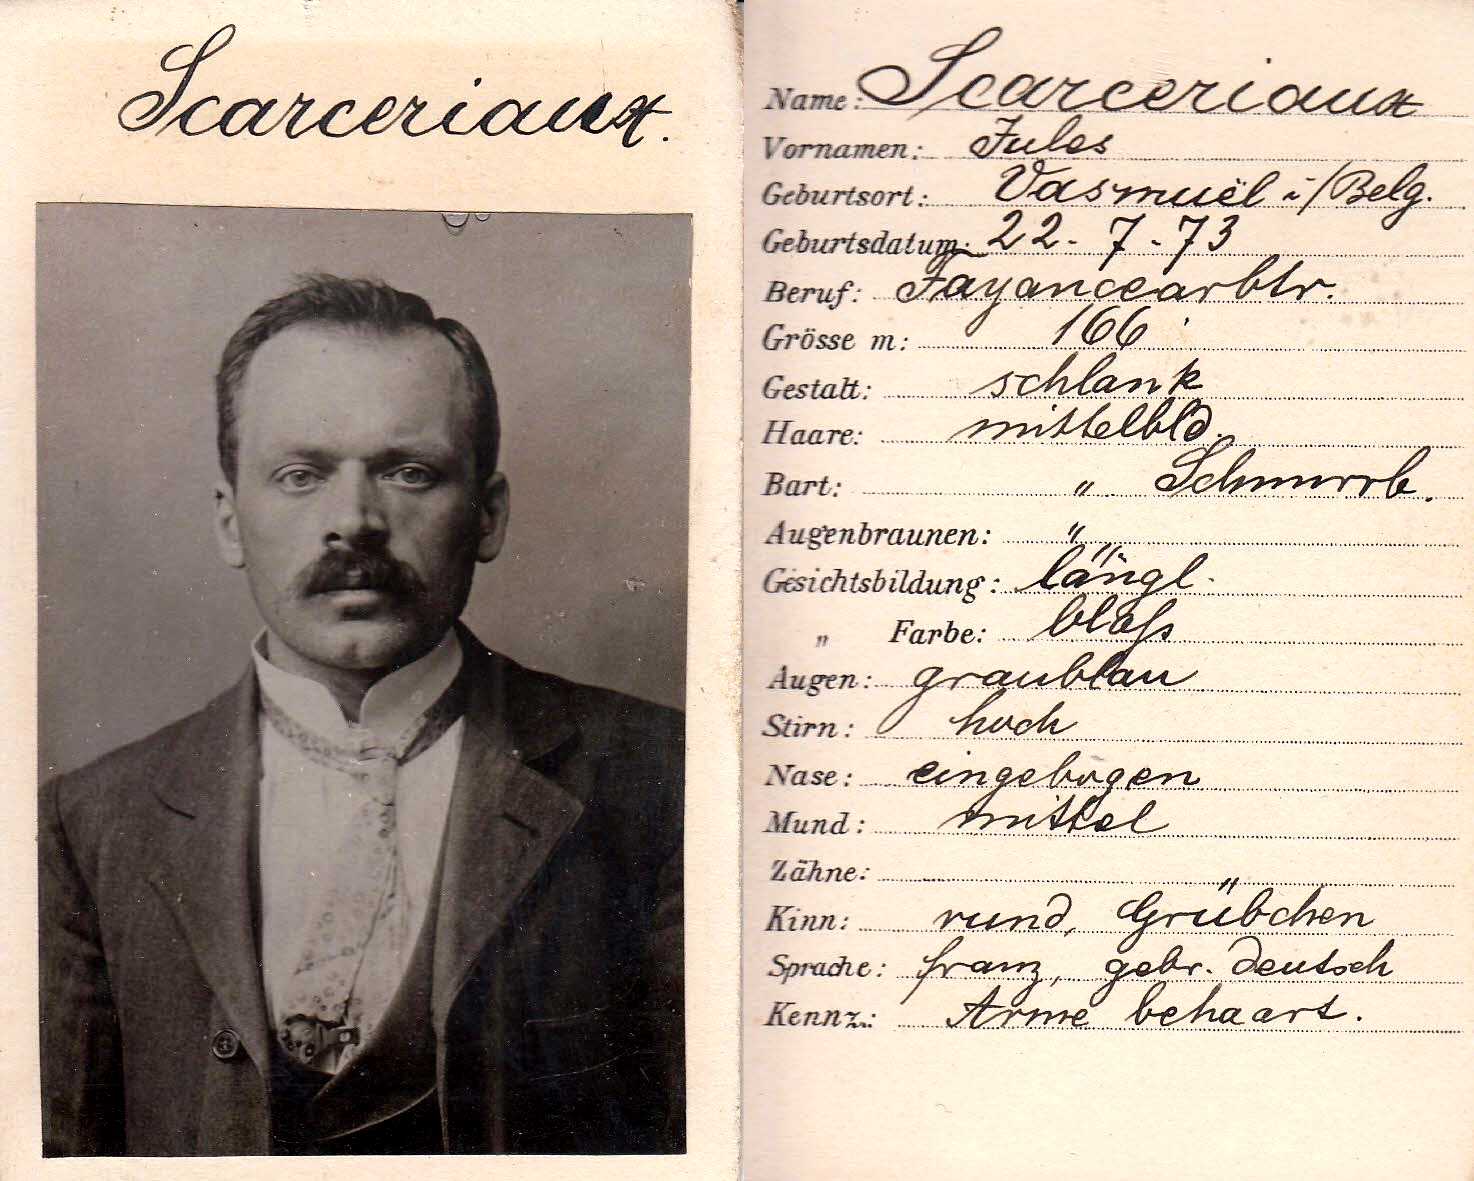 Scarceriaux.
Name: Scarceriaux
Vornamen: Jules
Geburtsort: Vasmuël i/Belg.
Geburtsdatum: 22. 7. 73
Beruf: Fayancearbtr.
Grösse m: 166
Gestalt: schlank
Haare: mittelbld.
Bart: " Schnurrb.
Augenbraunen: "
Gesichtsbildung: längl.
" Farbe: blaß
Augen: graublau
Stirn: hoch
Nase: eingebogen
Mund: mittel
Zähne:
Kinn: rund, Grübchen
Sprache: franz, gebr. deutsch
Kennz.: Arme behaart.